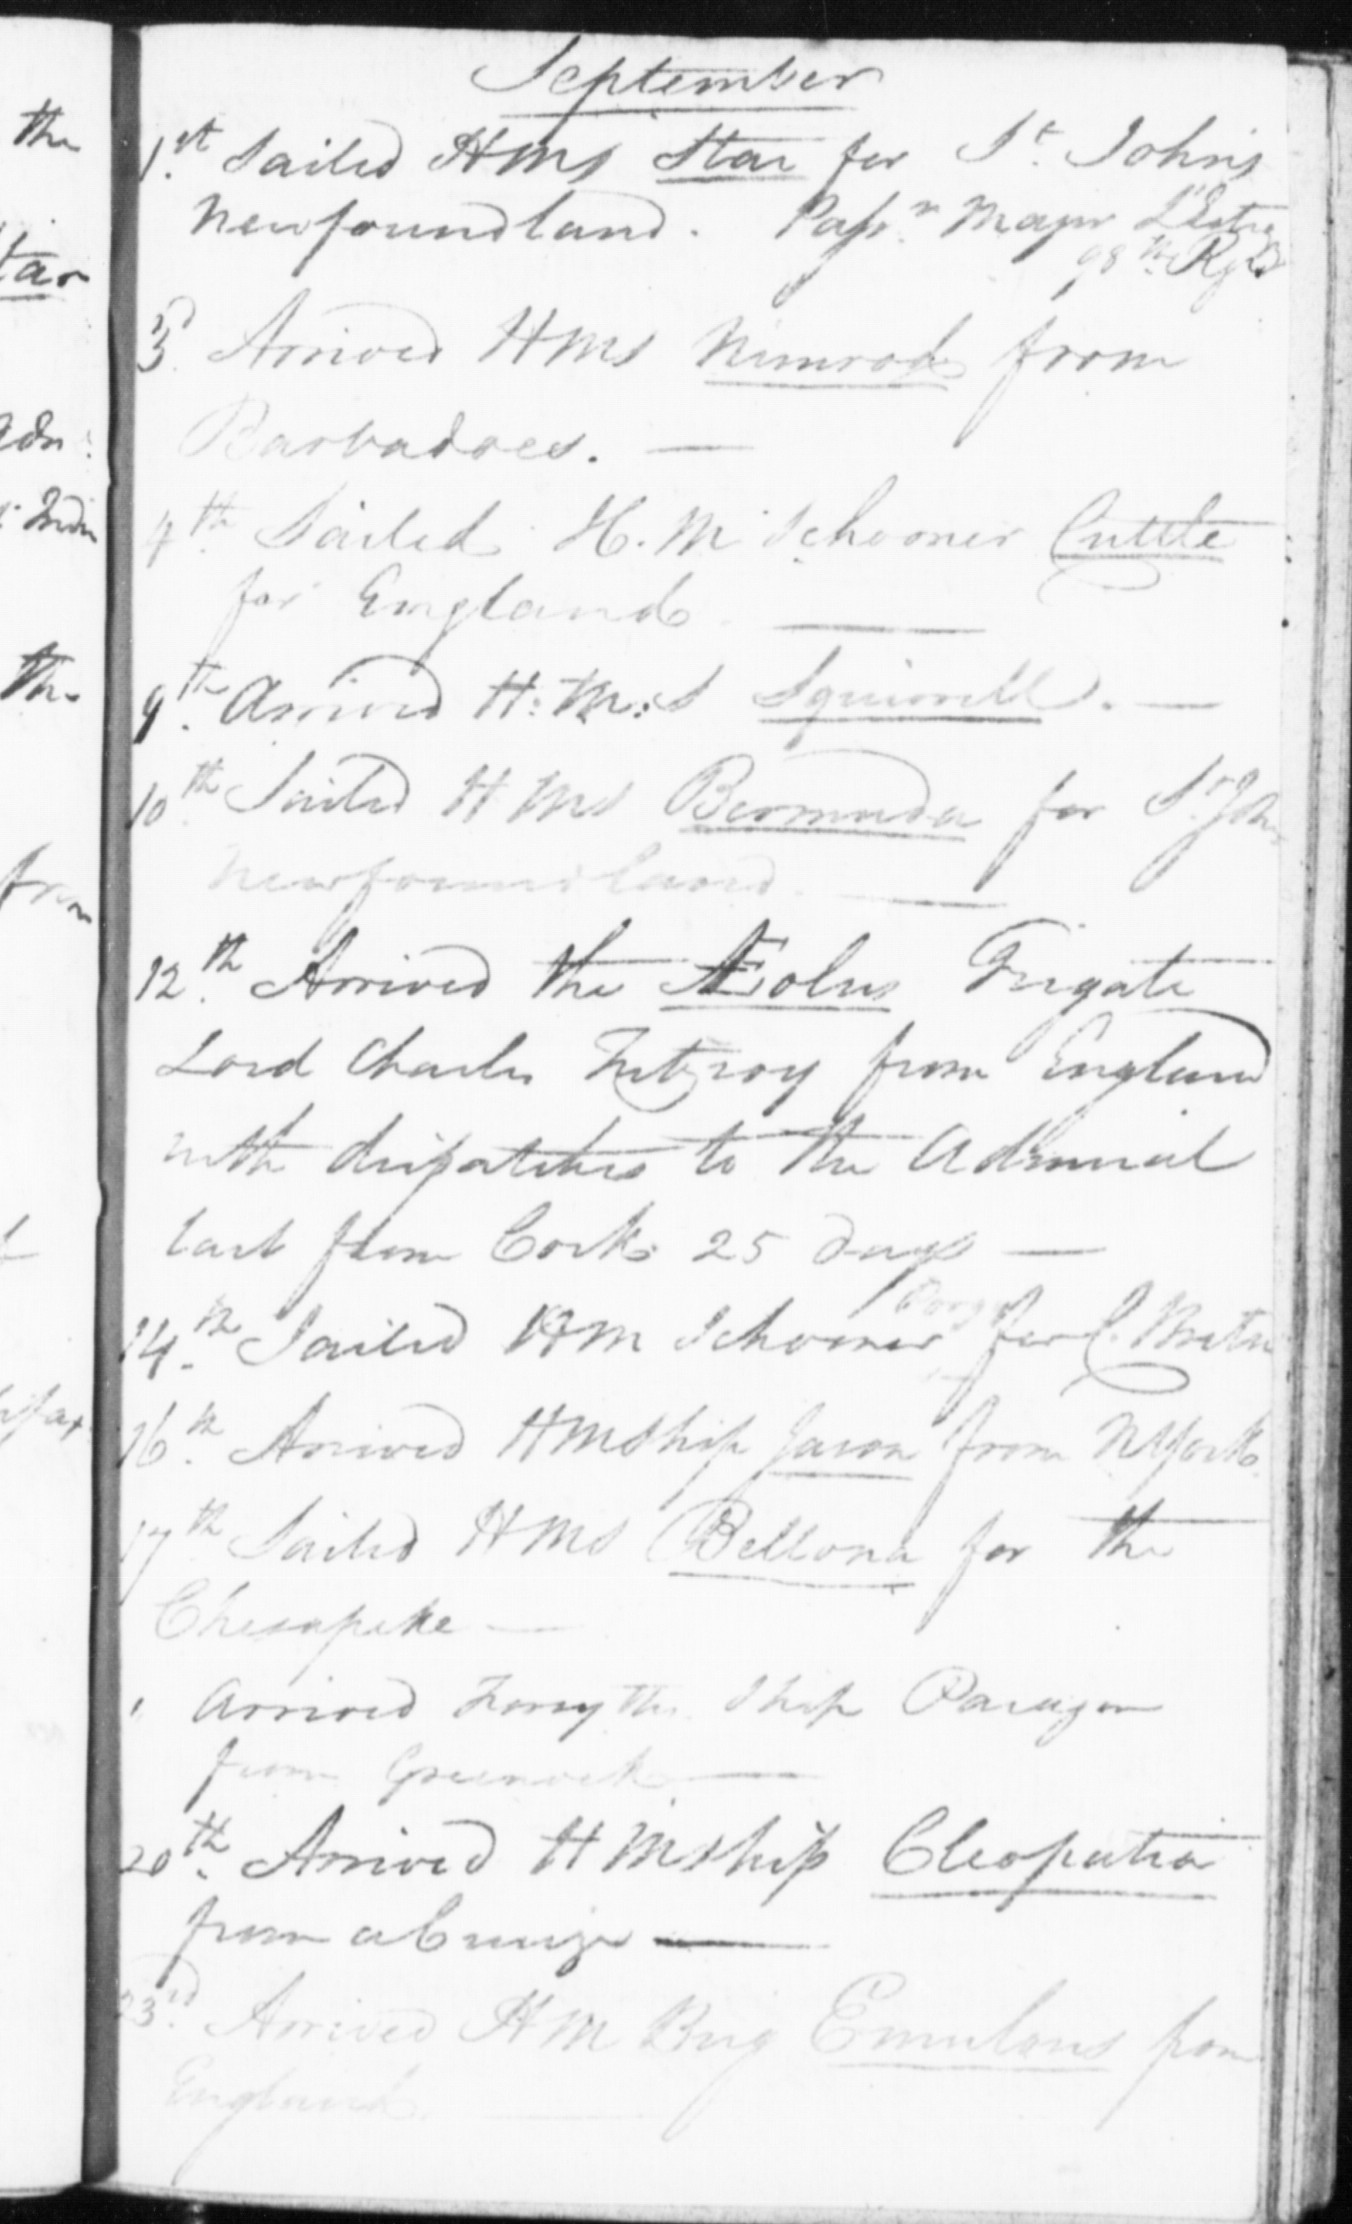 September
1st Sailed HMS Star for St. Johns
Newfoundland. Passr. Major
98th Regt
3d Arrived HMS Nimrod from
Barbadoes. —
4th Sailed H. M Schooner Cuttle
for England. —
9th. Arrived H: M: S Squirrell. —
10th. Sailed HMS Bermuda for St. John
Newfoundland. —
12th. Arrived the Æolus Frigate
Lord Charles Fitzroy from England
with dispatches to the Admiral
last from Cork 25 days —
14.th Sailed HM Schooner for
16.th Arrived HMShip Jason from NYork
17th Sailed HMS Bellona for the
Chesapeke —
" Arrived Forsyths Ship Paragon
from Greenock —
20th. Arrived HMShip Cleopatra
from a Cruize —
23rd. Arrived HM Brig Emulous from
England. —
the
tar
Adm:
Indi
the
from
lifax